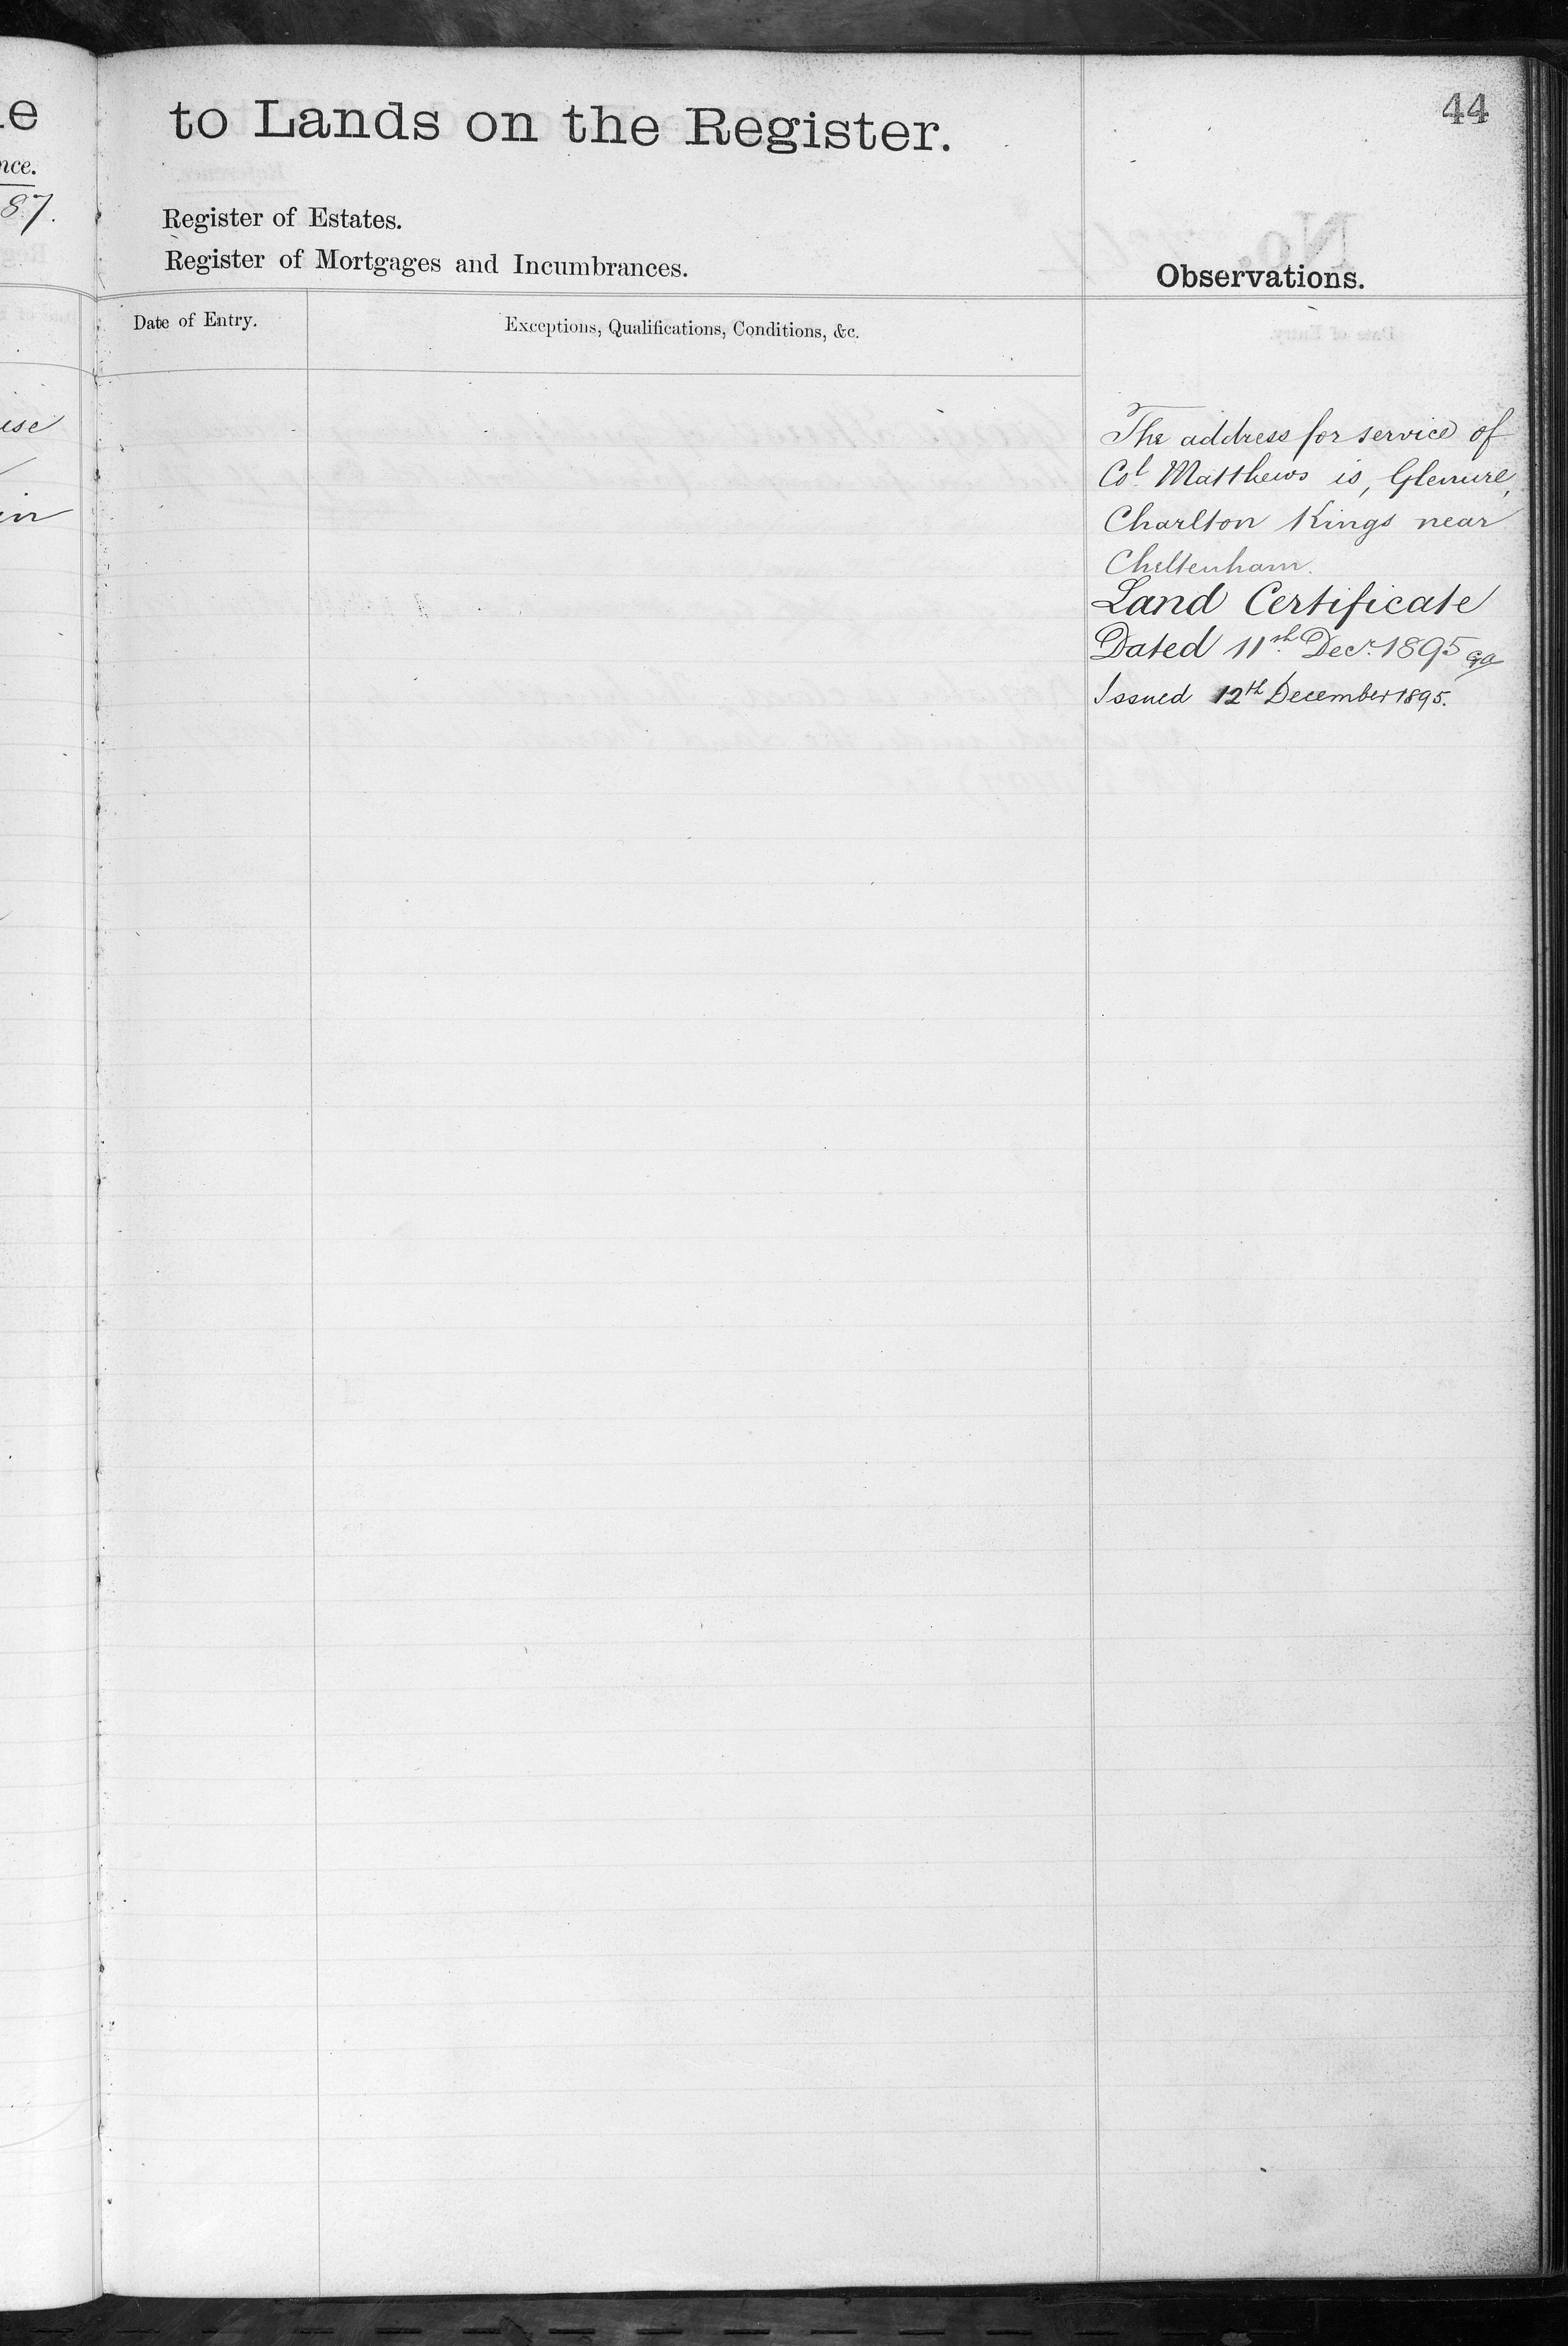 44
to Lands on the Register.
nce.
87.
Register of Estates.
Register of Mortgages and Incumbrances.
Observations.
Date of Entry.
Exceptions, Qualifications, Conditions, &c.
The address for service of
Col. Matthews is, Glenure,
Charlton Kings near
Cheltenham.
Land Certificate
Dated 11th Decr. 1895
Issued 12th December 1895.